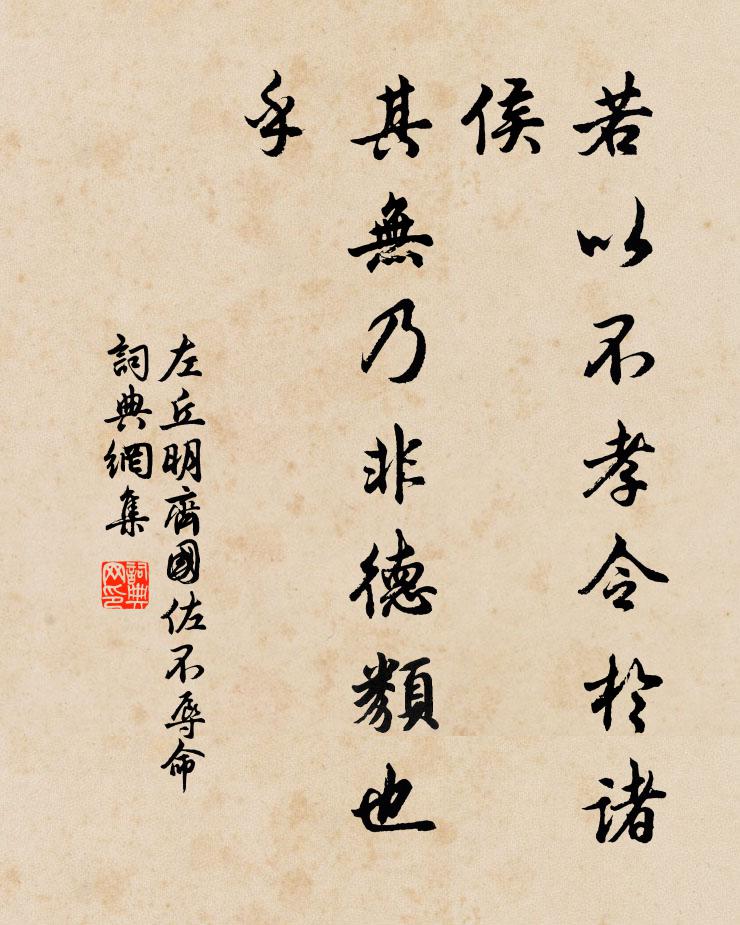 若以不孝令於諸
侯
其無乃非德類也
乎
左丘明齊國佐不辱命
詞典網集
詞典
网印